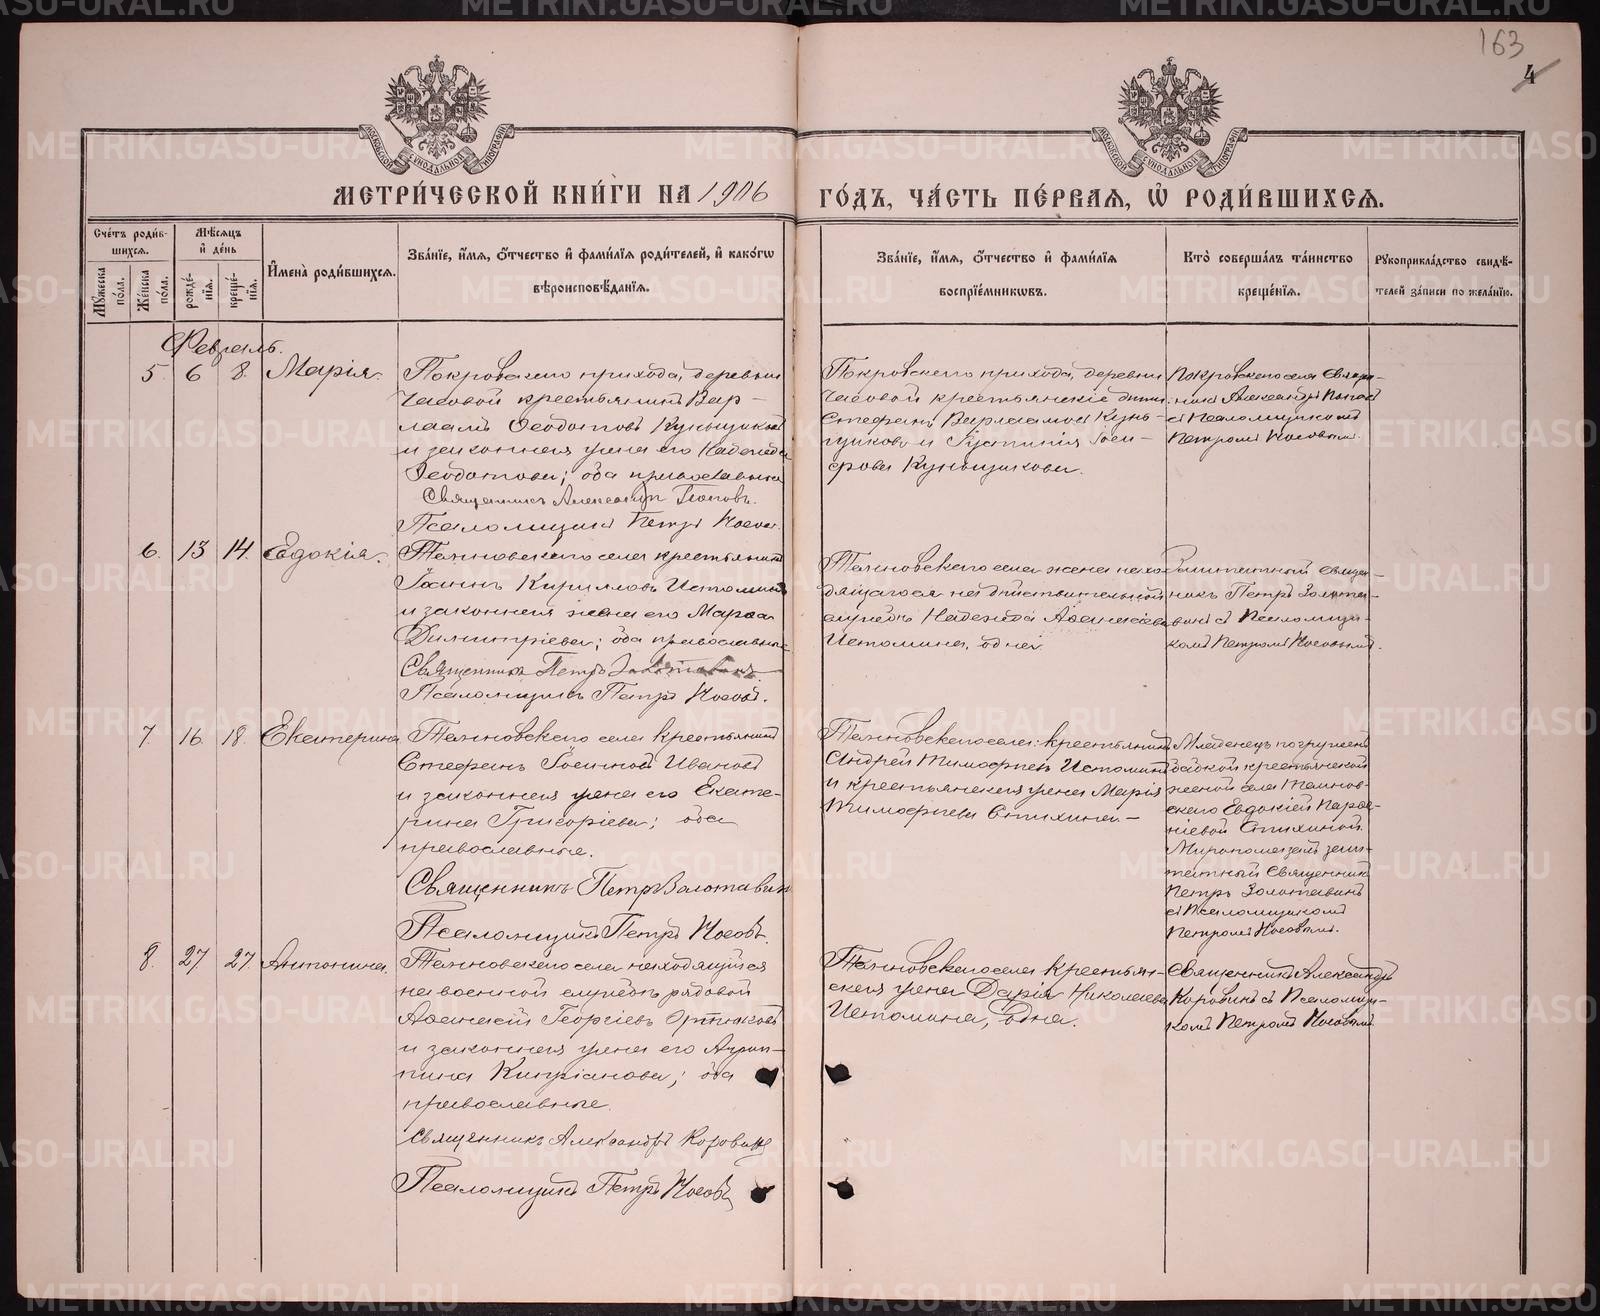 163
4
МЕТРИ́ЧЕСКОЙ КНИ́ГИ НА 1906 ГО́ДЪ, ЧА́СТЬ ПЕ́РВАЯ, Ѡ РОДИ́ВШИХСЯ.
Сче́тъ роди́вшихся.
Мѣ́сяцъ и҆ де́нь
Му́жеска по́ла.
Же́нска по́ла.
рожде́нїя.
креще́нїя.
И҆мена̀ роди́вшихся.
Зва́нїе, и҆́мя, о҆́тчество и҆ фами́лїя роди́телей, и҆ како́гѡ
вѣроисповѣ́данїя.
Зва́нїе, и҆́мя, о҆́тчество и҆ фами́лїя
воспрїе́мникѡвъ.
Кто̀ соверша́лъ та́инство
креще́нїя.
Рукоприкла́дство свидѣ́-
телей за́писи по жела́нїю.
Февраль.
5. 6 8. Марія.
Покровскаго прихода, деревни
Часовой крестьянинъ Вар-
лаамъ Ѳеодотовъ Куньщиковъ
и законная жена его Надежда
Ѳеодотова; оба православные
Священникъ Александръ Поповъ.
Псаломщикъ Петръ Носовъ.
Покровскаго прихода, деревни
Часовой крестьянскіе дѣти:
Стефанъ Варлаамовъ Кунь-
щиковъ и Іустинія Іоси-
фова Куньщикова.
Покровскаго села Священ-
никъ Александръ Поповъ
съ Псаломщикомъ
Петромъ Носовымъ.
6. 13 14. Евдокія.
крестьянинъ
Іоаннъ Кирилловъ Истоминъ
и законная жена его Марѳа
Димитріева; оба православные.
Священникъ Петръ Золотавинъ
Псаломщикъ Петръ Носовъ.
села жена нахо-
дящагося на дѣйствительной
службѣ Надежда Аѳанасьева
Истомина, одна.
Заштатный Священ-
никъ Петръ Золота-
винъ съ Псаломщи-
комъ Петромъ Носовымъ.
7. 16. 18. Екатерина
села крестьянинъ
Стефанъ Іоанновъ Ивановъ
и законная жена его Екате-
рина Григоріева; оба
православные.
Священникъ Петръ Золотавинъ
Псаломщикъ Петръ Носовъ.
села: крестьянинъ
Андрей Тимоѳеевъ Истоминъ
и крестьянская жена Марія
Тимоѳеева Стихина.-
Младенецъ погруженъ
бабкой крестьянской
женой села
Евдокіей
Стихиной.
Мѵропомазалъ заш-
татный Священникъ
Петръ Золотавинъ
съ Псаломщикомъ
Петромъ Носовымъ.
8. 27 27. Антонина.
села находящійся
на военной службѣ рядовой
Аѳанасій Георгіевъ Ортюковъ
и законная жена его Агрип-
пина Кипріанова; оба
православные.
Священникъ Александръ Коровинъ
Псаломщикъ Петръ Носовъ
села крестьян-
ская жена Дарія Николаева
Истомина, одна.
Священникъ Александръ
Коровинъ съ Псаломщи-
комъ Петромъ Носовымъ.
METRIKI.GASO-URAL.RU